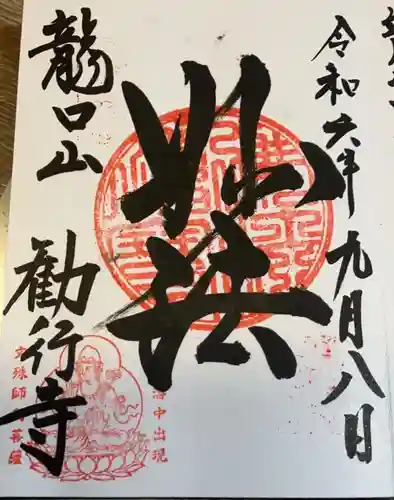 令和六年九月八日
妙法
龍口山
勧行寺
文殊師利菩薩
海中出現